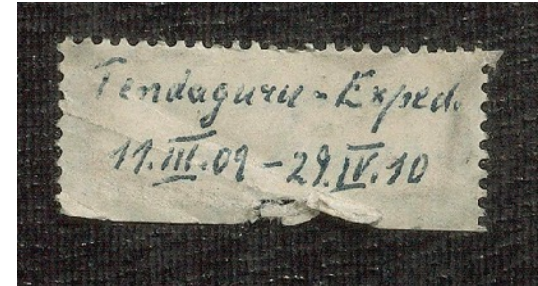 Tendaguru-Exped.
11.III.09-29.IV.10